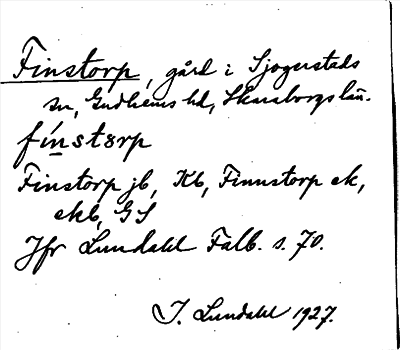 Finstorp, gård i Sjogerstads
sn, Gudhems hd, Skaraborgs län.
fínstɜrp
Finstorp jb, Kb, Finnstorp ek,
ekb, GS
Jfr Lundahl Falb. s. 70.
I. Lundahl 1927.